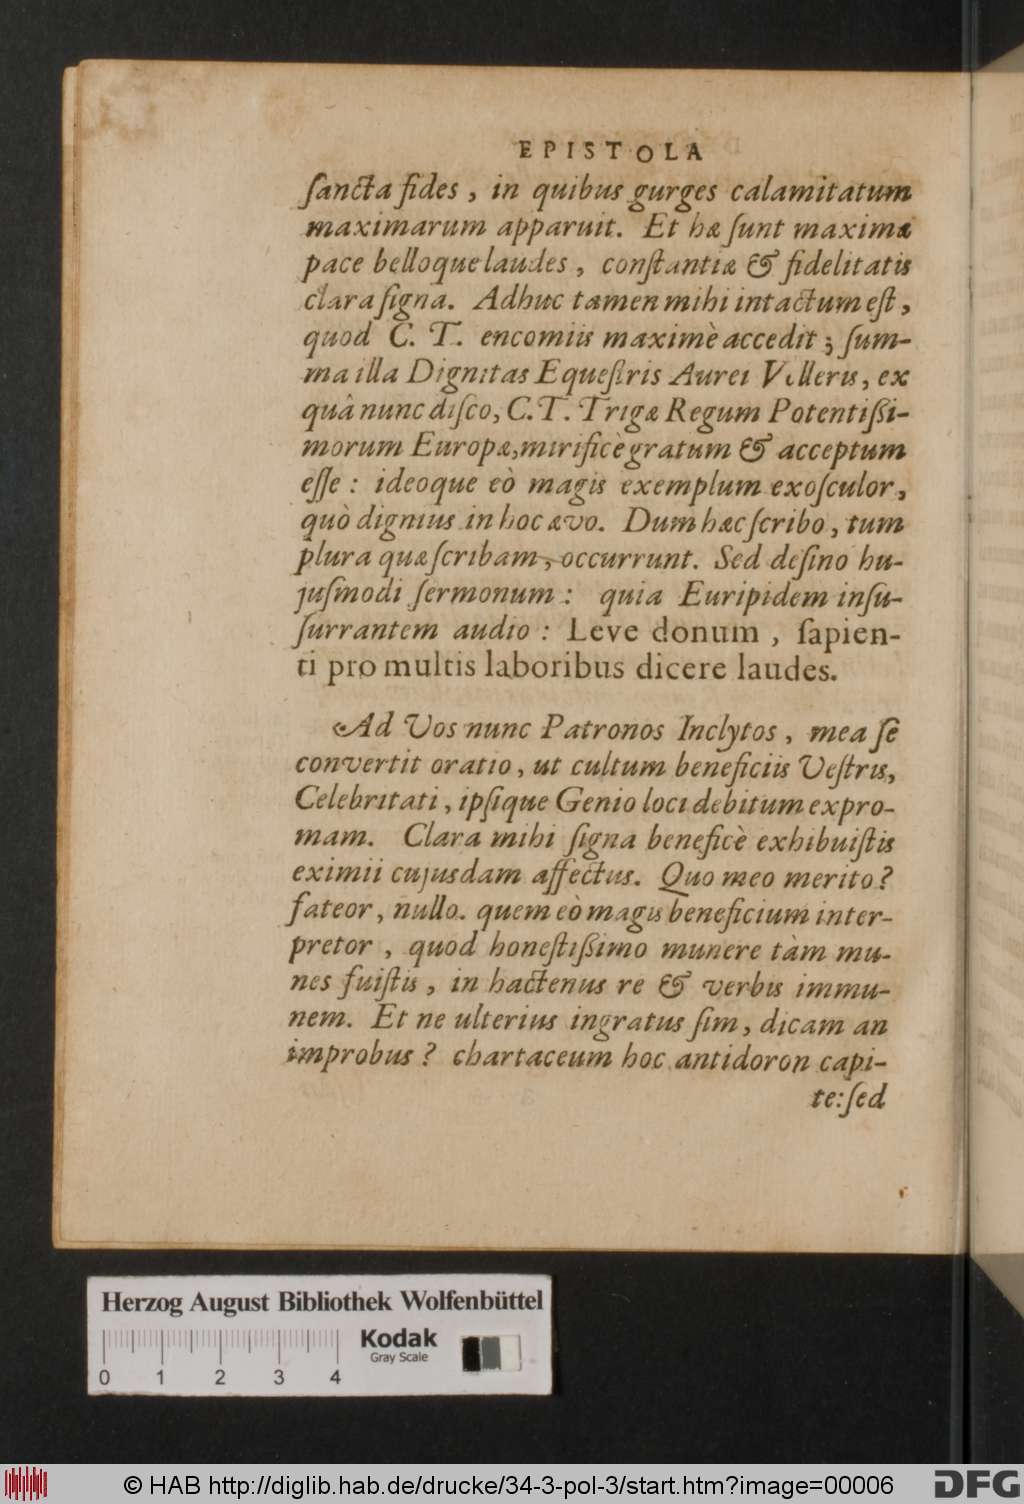 EPISTOLA
ſancta fides, in quibus gurges calamitatum
maximarum apparuit. Et hæ ſunt maximæ
pace belloque laudes, conſtantiæ & fidelitatis
clara ſigna. Adhuc tamen mihi intactum eſt,
quod C. T. encomiis maximè accedit; ſum-
ma illa Dignitas Equeſtris Aurei Velleris, ex
quâ nunc diſco, C. T. Trigæ Regum Potentiſſi-
morum Europæ, mirificè gratum & acceptum
eſſe: ideoque eò magis exemplum exoſculor,
quò dignius in hoc ævo. Dum hæc ſcribo, tum
plura quæ ſcribam, occurrunt. Sed deſino hu-
juſmodi ſermonum: quia Euripidem inſu-
ſurrantem audio: Leve donum, ſapien-
ti pro multis laboribus dicere laudes.
Ad Vos nunc Patronos Inclytos, mea ſe
convertit oratio, ut cultum beneficiis Veſtris,
Celebritati, ipſique Genio loci debitum expro-
mam. Clara mihi ſigna beneficè exhibuiſtis
eximii cujusdam affectus. Quo meo merito?
fateor, nullo. quem eò magis beneficium inter-
pretor, quod honeſtiſſimo munere tàm mu-
nes fuiſtis, in hactenus re & verbis immu-
nem. Et ne ulterius ingratus ſim, dicam an
improbus? chartaceum hoc antidoron capi-
te: ſed
Herzog August Bibliothek Wolfenbüttel
Kodak
Gray Scale
0 1 2 3 4
© HAB http://diglib.hab.de/drucke/34-3-pol-3/start.htm?image=00006
DFG